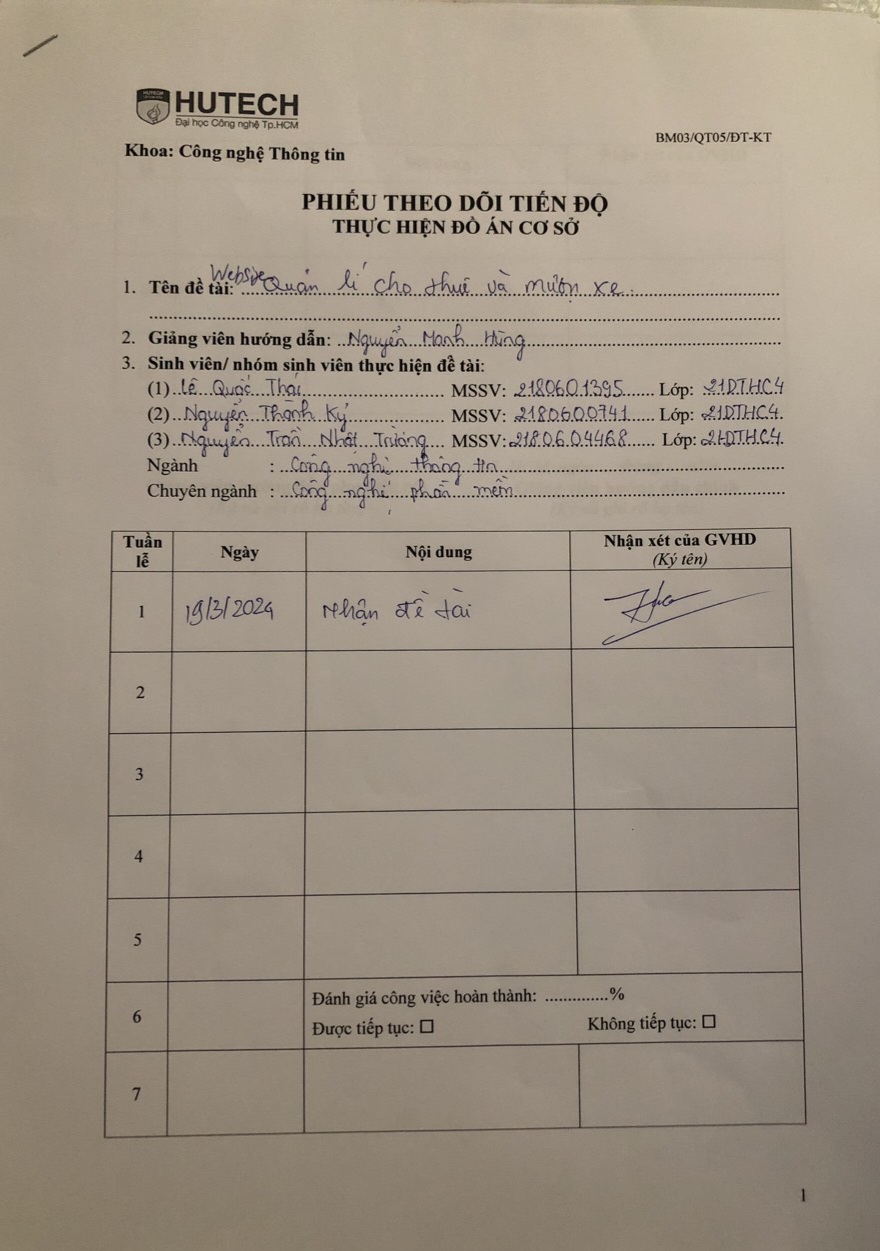 HUTECH
HUTECH
Đại học Công nghệ Tp.HCM
BM03/QT05/ĐT-KT
Khoa: Công nghệ Thông tin
PHIẾU THEO DÕI TIẾN ĐỘ
THỰC HIỆN ĐỒ ÁN CƠ SỞ
1. Tên đề tài: Website Quản lí cho thuê và mượn xe.
2. Giảng viên hướng dẫn: Nguyễn Mạnh Hùng
3. Sinh viên/ nhóm sinh viên thực hiện đề tài:
(1) Lê Quốc Thái MSSV: 2180601395 Lớp: 21DTHC4
(2) Nguyễn Thành Kỷ MSSV: 2180600741 Lớp: 21DTHC4.
(3) Nguyễn Trần Nhật Trường MSSV: 2180604468 Lớp: 21DTHC4.
Ngành : Công nghệ thông tin
Chuyên ngành : Công nghệ phần mềm
Tuần lễ Ngày Nội dung Nhận xét của GVHD
(Ký tên)
1 19/3/2024 Nhận đề tài
2
3
4
5
6 Đánh giá công việc hoàn thành: ..............%
Được tiếp tục: ☐ Không tiếp tục: ☐
7
1